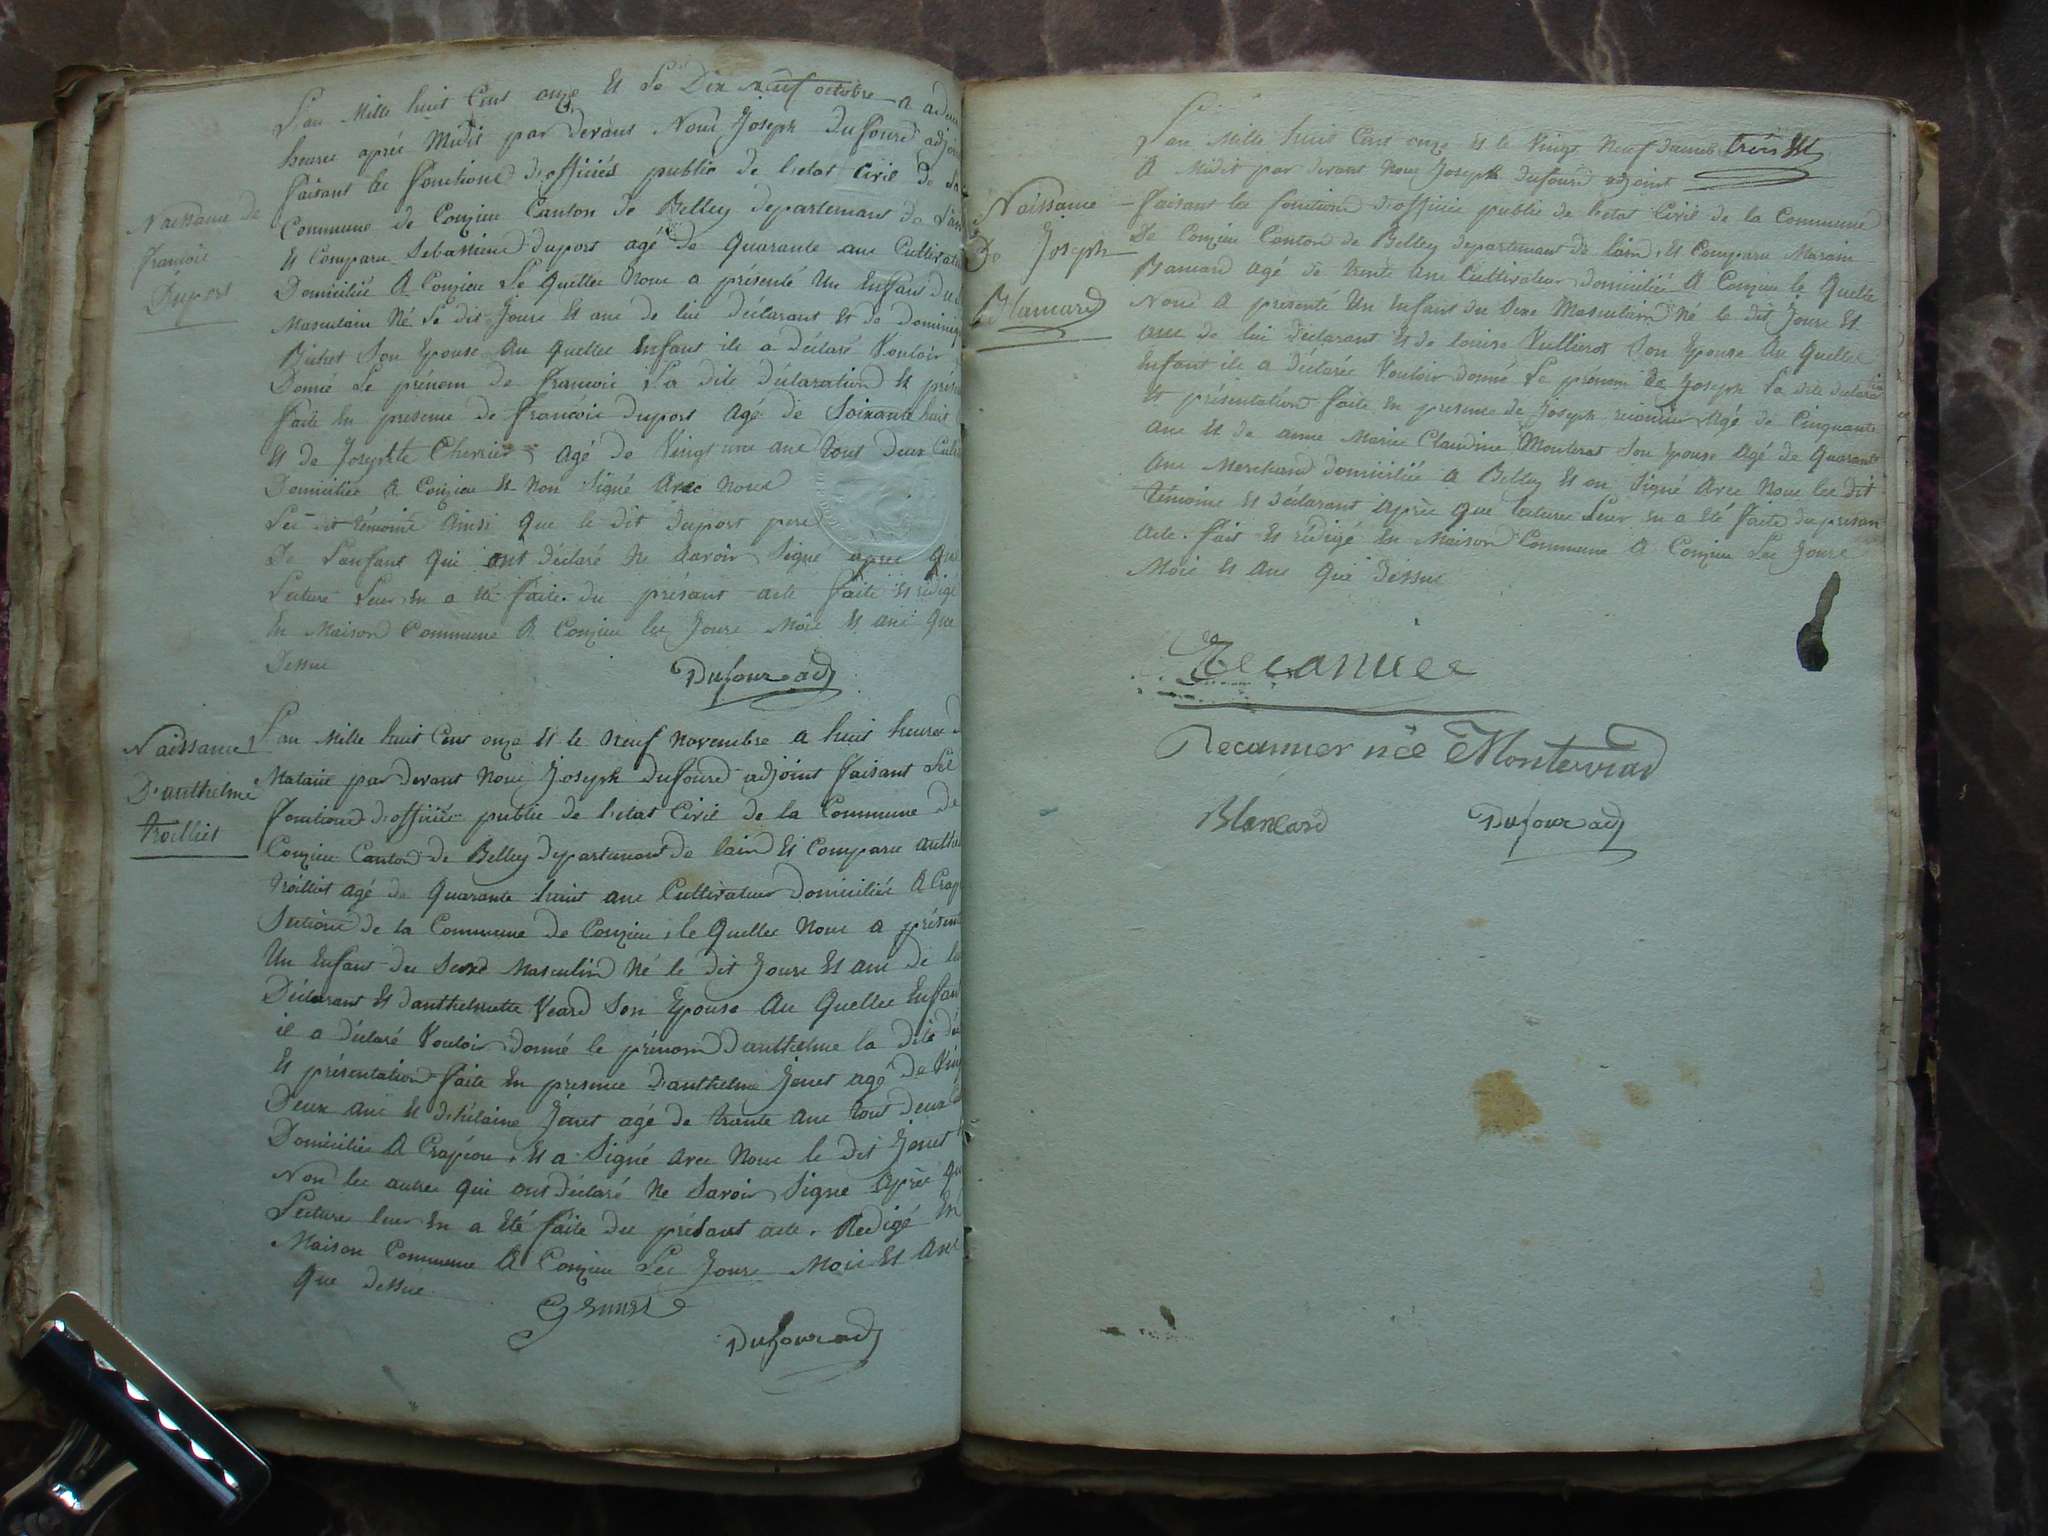 L'an Mille huit Cent onze Et Le Dix neuf octobre a
heures après Midit par devant Nous Joseph Dufourd adjoin
faisant les fonctions d'officiés public de l'etat Civil de La
Commune de Conzieu Canton de Belley departemant de L'ain
Et Comparu Sebastiend duport agé de Quarante ans Cultivate
Domicilié A Conzieu Le Quelle Nous a présenté Un Enfant du
Masculain Né Le dit Jours Et ans de lui déclarant Et de
Naissance de
francois
Duport
Bichet Son Epouse Au Quelle Enfant ile a déclaré Vouloir
Donné Le prénom de francois La dite déclaration Et prés
faite En présence de francois duport Agé de Soixante huit
Et de Josephte Chervier agé de Vingt une ans tous deux Cult
Domicilie A Conzieu Et Non Signé Avec Nous
Les dit témoins Ainsi Que le dit duport pere
De L'enfant Qui ont déclaré Ne Savoir Signé apres Que
Lecture Leur En a été faite du présant acte fait Et rédigé
En Maison Commune A Conzieu les Jours Mois Et ans Que
Dessus
Dufour adj
Naissance
D'anthelme
trolliet
L'an Mille huit Cent onze Et le Neuf Novembre a huit heures d
Mataine par devant Nous Joseph Dufourd adjoint faisant Les
fonctions d'officiés public de l'etat Civil de la Commune de
Conzieu Canton de Belley departemant de lain Et Comparu anthel
trolliet agé de Quarante huit ans Cultivateur domicilié A Crap
Sections de la Commune de Conzieu, le Quelle Nous a présent
Un Enfant du Sexe Masculin Né le dit Jours Et ans de lui
Déclarant Et danthelmette Veard Son Epouse Au Quelle Enfant
il a déclaré Vouloir donné le prénom Danthelme la dite dé
Et présentation faite En presence danthelme Jenet agé de Vin
Deux ans Et d'hilaire Janet agé de trente ans tous deux
Domicilie A Crapéou, Et a Signé avec Nous le dit Jenet
Non les autres Qui ont déclaré Ne Savoir Signé Après Que
Lecture leur En a été faite du présant acte. Redigé En
Maison Commune A Conzieu Les Jours Mois Et Ans
Que dessus
Dufour adj
L'an Mille huit Cent onze Et le Vingt Neuf
A Midit par devant Nous Joseph Dufourd adjoint
Naissance
De Joseph
Blancard
faisant les fonctions d'officié public de l'etat Civil de la Commune
De Conzieu Canton de Belley departemant de lain, Et Comparu Marain
Bancard agé de trente ans Cultivateur domicilié A Conzieu le Quelle
Nous A présenté Un Enfant du Sexe Masculain Né le dit Jours Et
ans de lui déclarant Et de louise Vullierot Son Epouse Au Quelle
Enfant ile a déclarée Vouloir donné Le prénom de Joseph La dite déclara
Et présentation faite En presence de Joseph recamier Agé de Cinquante
ans Et de anne Marie Claudine Monterat Son Epouse Agé de Quarante
Ans Marchand domicilié A Belley Et on Signé Avec Nous les dit
témoins Et déclarant Après Que lecture Leur En a été faite du présan
Acte. fait Et rédigé En Maison Commune A Conzieu Les Jours
Mois Et Ans Que dessus
Recamier
Recamier née Monterrad
Blancard Dufour adj